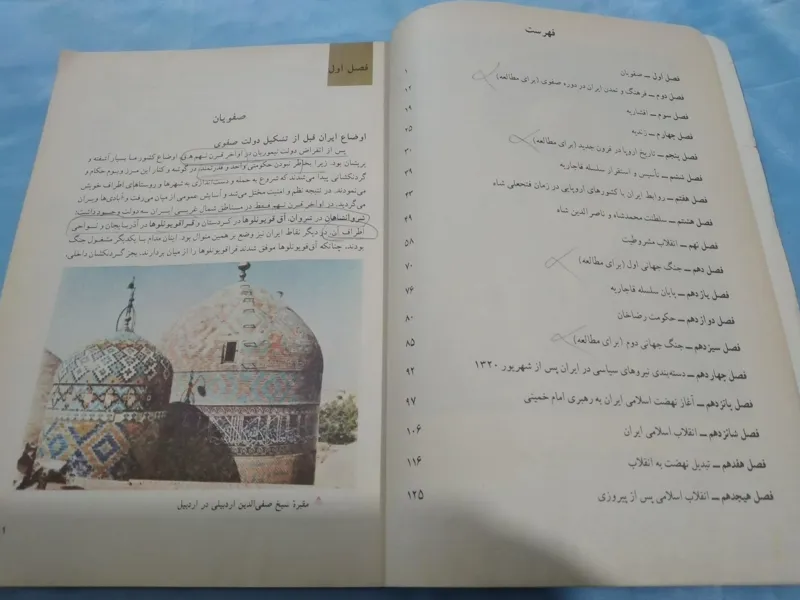 فهرست
فصل اول ــ صفویان ۱
فصل دوم ــ فرهنگ و تمدن ایران در دوره صفوی (برای مطالعه) ۱۲
فصل سوم ــ افشاریه ۱۹
فصل چهارم ــ زندیه ۲۵
فصل پنجم ــ تاریخ اروپا در قرون جدید (برای مطالعه) ۳۰
فصل ششم ــ تأسیس و استقرار سلسله قاجاریه
فصل هفتم ــ روابط ایران با کشورهای اروپایی در زمان فتحعلی شاه ۴۳
فصل هشتم ــ سلطنت محمدشاه و ناصر الدین شاه ۴۹
فصل نهم ــ انقلاب مشروطیت ۵۸
فصل دهم ــ جنگ جهانی اول (برای مطالعه) ۷۰
فصل یازدهم ــ پایان سلسله قاجاریه ۷۶
فصل دوازدهم ــ حکومت رضاخان ۸۰
فصل سیزدهم ــ جنگ جهانی دوم (برای مطالعه) ۸۵
فصل چهاردهم ــ دسته‌بندی نیروهای سیاسی در ایران پس از شهریور ۱۳۲۰ ۹۲
فصل پانزدهم ــ آغاز نهضت اسلامی ایران به رهبری امام خمینی ۹۷
فصل شانزدهم ــ انقلاب اسلامی ایران ۱۰۶
فصل هفدهم ــ تبدیل نهضت به انقلاب ۱۱۶
فصل هیجدهم ــ انقلاب اسلامی پس از پیروزی ۱۲۵
فصل اول
صفویان
اوضاع ایران قبل از تشکیل دولت صفوی
پس از انقراض دولت تیموریان در اواخر قرن نهم هـ.ق اوضاع کشور ما بسیار آشفته و
پریشان بود. زیرا بخاطر نبودن حکومتی واحد و قدرتمند در گوشه و کنار این مرز و بوم حکام و
گردنکشانی پیدا می‌شدند که شروع به حمله و دست‌اندازی به شهرها و روستاهای اطراف خویش
می‌نمودند. در نتیجه نظم و امنیت مختل می‌شد و آسایش عمومی از میان می‌رفت و آبادی‌ها ویران
می‌گردید. در اواخر قرن نهم هـ.ق در مناطق شمال غربی ایران سه دولت وجود داشت:
شیروانشاهان در شیروان، آق قویونلوها در کردستان و قراقویونلوها در آذربایجان و نواحی
اطراف آن. در دیگر نقاط ایران نیز وضع بر همین منوال بود. اینان مدام با یکدیگر مشغول جنگ
بودند، چنانکه آق‌قویونلوها موفق شدند قراقویونلوها را از میان بردارند، بجز گردنکشان داخلی،
مقبرهٔ شیخ صفی‌الدین اردبیلی در اردبیل